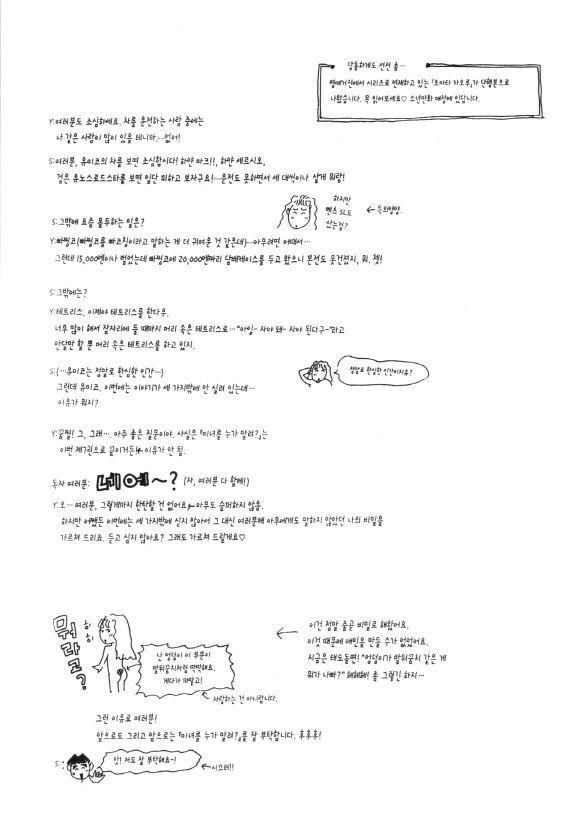 당돌하게도 선전 좀…
영매거진에서 시리즈로 연재하고 있는 「오마타 카오루」가 단행본으로
나왔습니다. 꼭 읽어보세요♡ 소년만화 매장에 있답니다.
Y:여러분도 조심하세요. 차를 운전하는 사람 중에는
나 같은 사람이 많이 있을 테니까…없어!
S:여러분, 유미코의 차를 보면 조심합시다! 하얀 마크!!, 하얀 세르시오,
검은 유노스로드스타를 보면 일단 피하고 보자구요! 운전도 못하면서 세 대씩이나 살게 뭐람!
하지만
벤츠 SL도
샀는걸?
←득의양양
S:그밖에 요즘 몰두하는 일은?
Y:빠찡코(빠찡코를 빠코칭이라고 말하는 게 더 귀여운 것 같은데)…아무려면 어때서…
그런데 15,000엔이나 벌었는데 빠찡코에 20,000엔짜리 담배케이스를 두고 왔으니 본전도 못건졌지, 뭐. 쳇!
S:그밖에는?
Y:테트리스. 이제야 테트리스를 한다우.
너무 많이 해서 잠자리에 들 때까지 머리 속은 테트리스로…"아잉~ 자야 돼~ 자야 된다구~"라고
안달만 할 뿐 머리 속은 테트리스를 하고 있지.
S:(…유미코는 정말로 한심한 인간…)
그런데 유미코. 이번에는 이야기가 세 가지밖에 안 실려 있는데…
이유가 뭐지?
정말로 한심한 인간이지유?
Y:꿈찔! 그, 그래…. 아주 좋은 질문이야. 사실은 『미녀를 누가 말려?』는
이번 제7권으로 끝이거든! 이유가 안 됨.
독자 여러분: 네에~? (자, 여러분 다 함께!)
Y:오… 여러분, 그렇게까지 한탄할 건 없어요 ←아무도 슬퍼하지 않음.
하지만 어쨌든 이번에는 세 가지밖에 싣지 않아서 그 대신 여러분께 아무에게도 말하지 않았던 나의 비밀을
가르쳐 드리죠. 듣고 싶지 않아요? 그래도 가르쳐 드릴게요♡
뭐라고?
히히
난 엉덩이 이 부분이
발뒤꿈치처럼 딱딱해요.
게다가 까맣고!
사랑하는 건 아니랍니다.
← 이건 정말 줄곧 비밀로 해왔어요.
이것 때문에 애인을 만들 수가 없었어요.
지금은 태도돌변! "엉덩이가 발뒤꿈치 같은 게
뭐가 나빠?" 헤헤헤! 좀 그렇긴 하지…
그런 이유로 여러분!
앞으로도 그리고 앞으로는 『미녀를 누가 말려?』를 잘 부탁합니다. 후후후!
S:
앗! 저도 잘 부탁해요~!
←시끄러!!